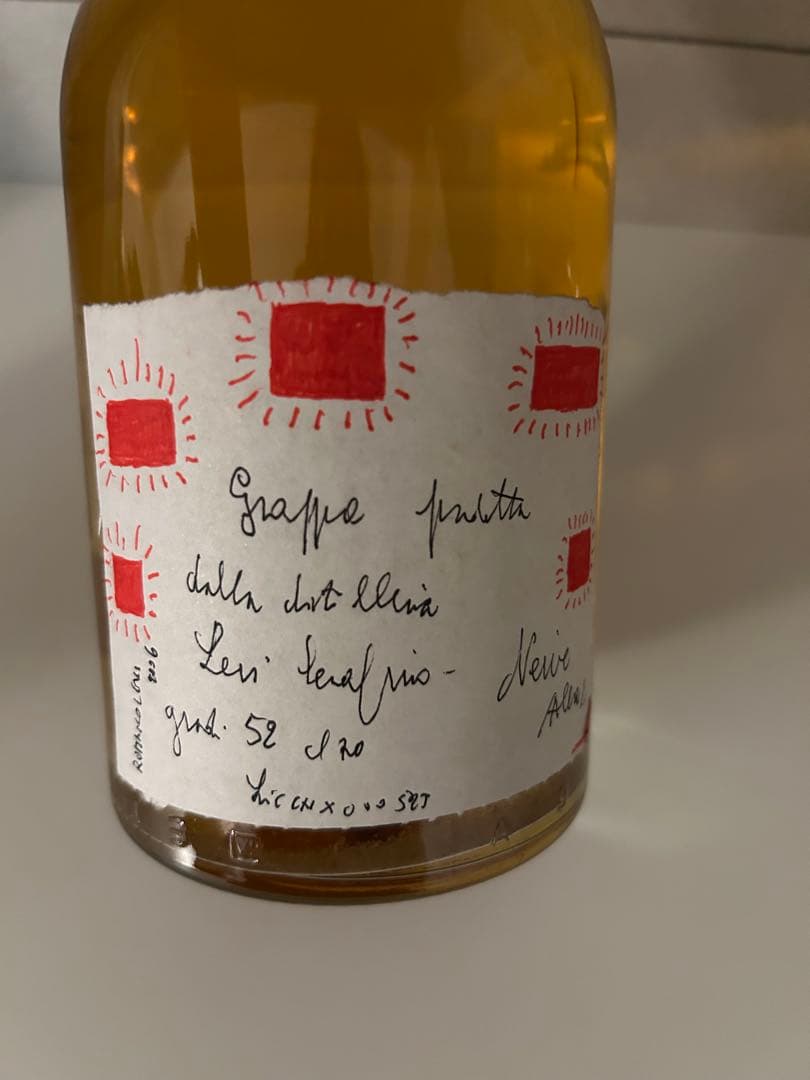 Grappa prodotta
dalla distilleria
Levi Serafino - Neive
gradi 52 cl 70
Lic CN X 000 525
ROMANO LEVI